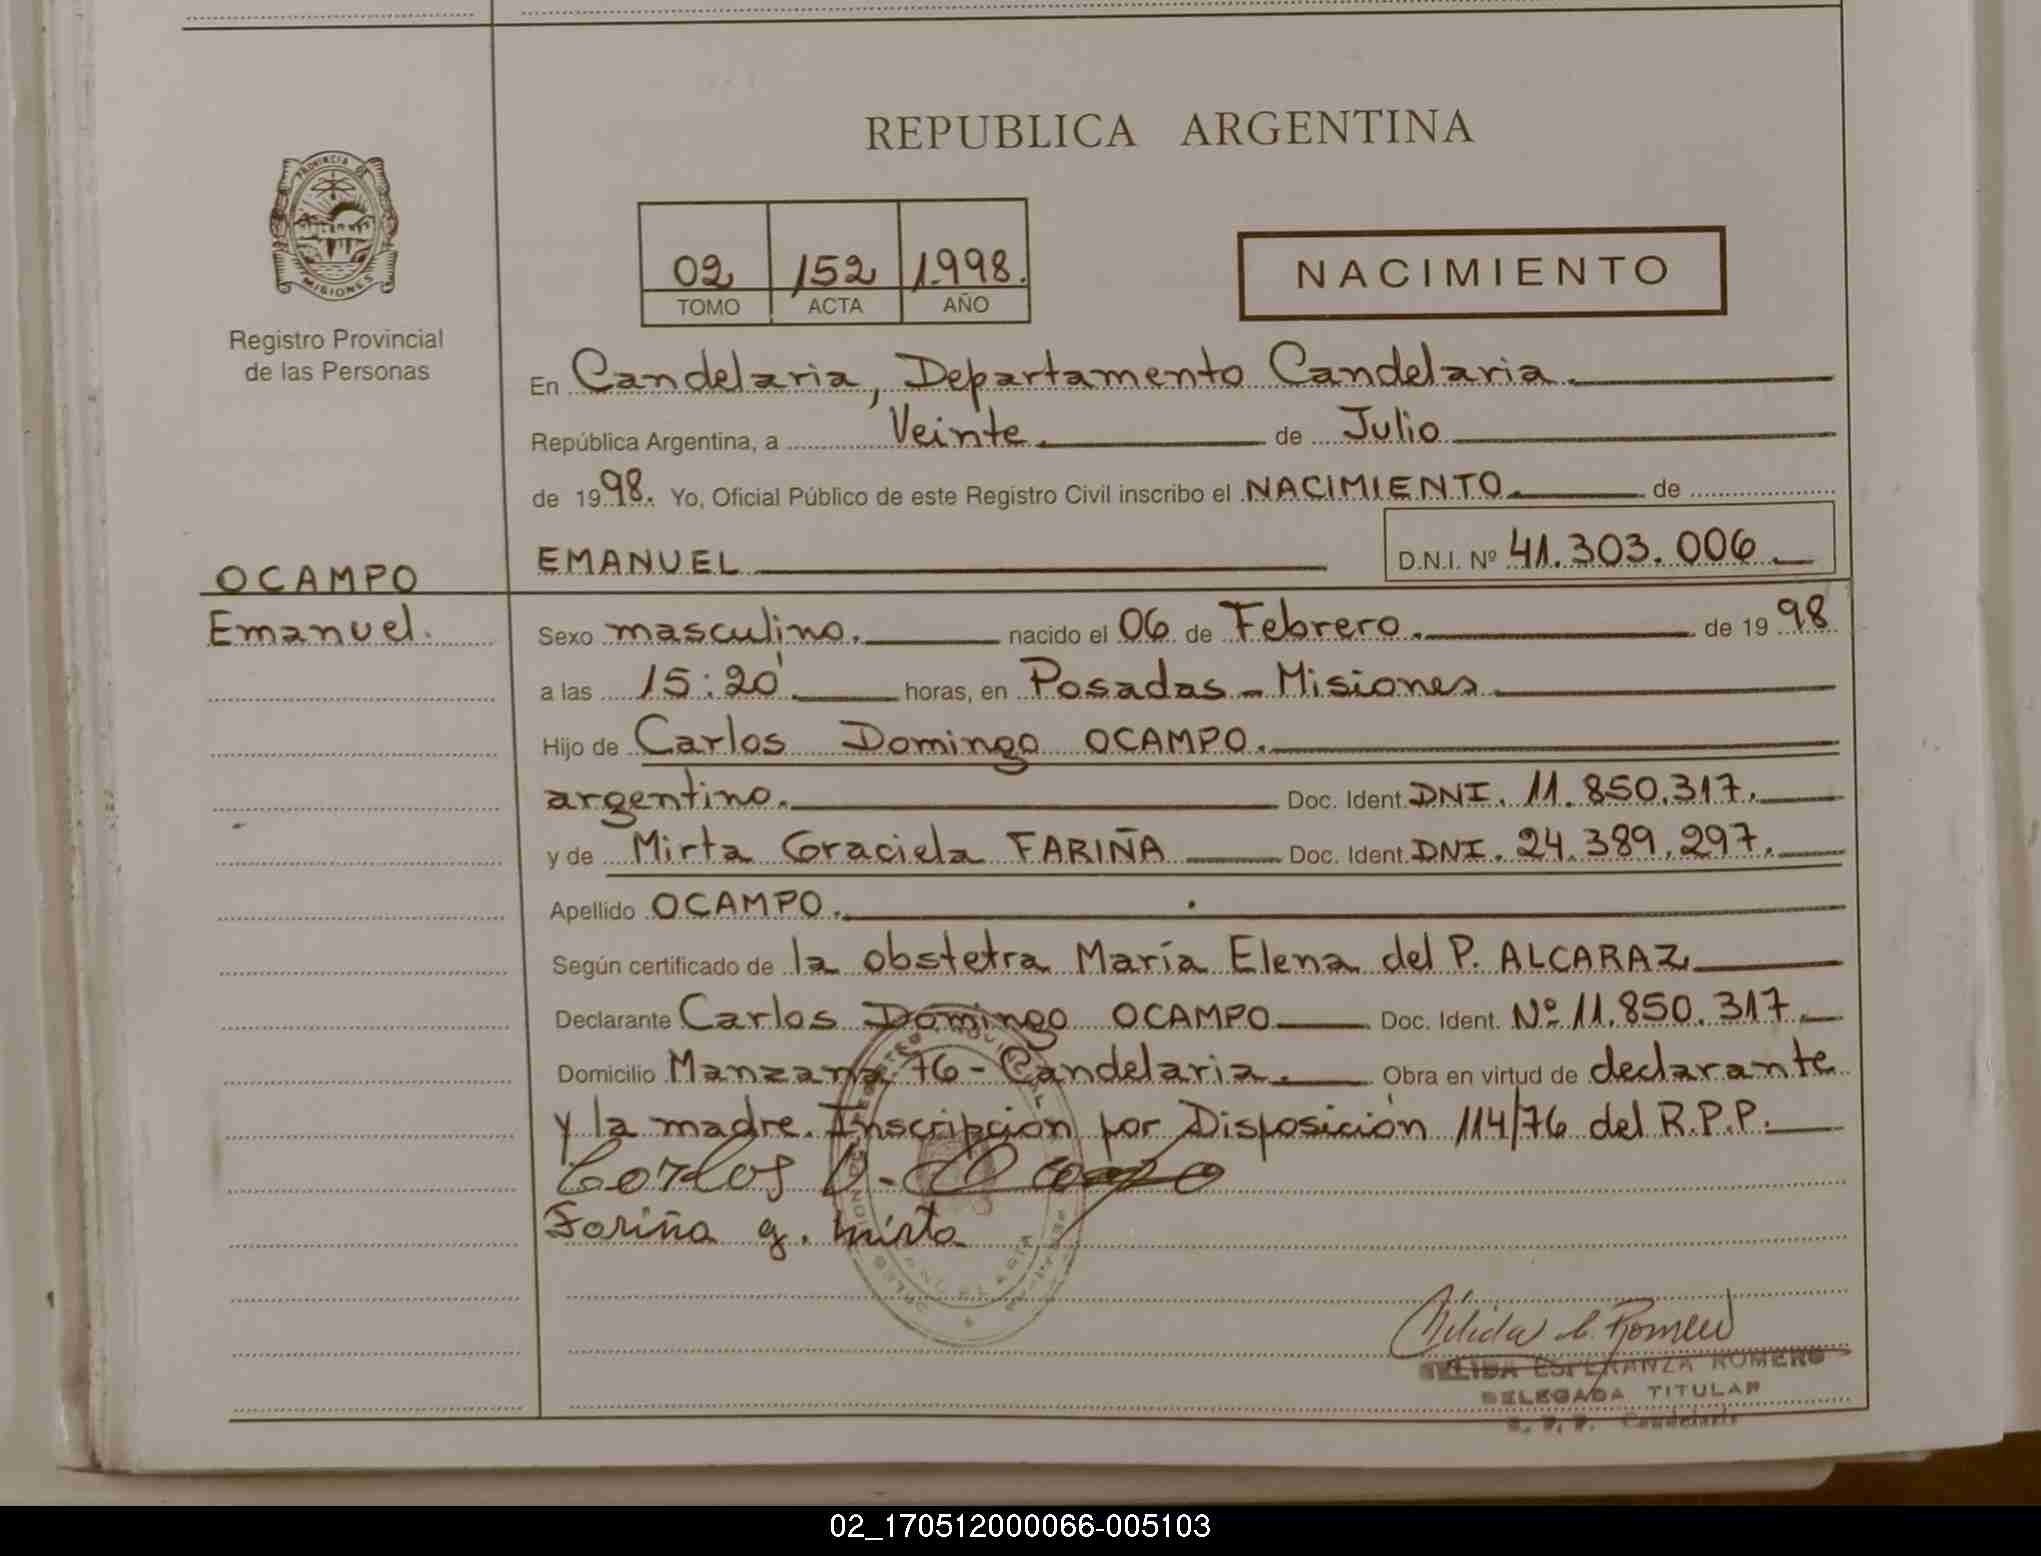 REPUBLICA ARGENTINA
PROVINCIA DE
MISIONES
Registro Provincial
de las Personas
02 152 1.998.
TOMO ACTA AÑO
NACIMIENTO
En Candelaria, Departamento Candelaria.
República Argentina, a Veinte. de Julio
de 1998. Yo, Oficial Público de este Registro Civil inscribo el NACIMIENTO de
OCAMPO
Emanuel.
EMANUEL D.N.I. Nº 41.303.006
Sexo masculino. nacido el 06 de Febrero. de 1998
a las 15:20' horas, en Posadas - Misiones
Hijo de Carlos Domingo OCAMPO.
argentino. Doc. Ident. DNI. 11.850.317.
y de Mirta Graciela FARIÑA Doc. Ident. DNI. 24.389.297.
Apellido OCAMPO.
Según certificado de la obstetra María Elena del P. ALCARAZ
Declarante Carlos Domingo OCAMPO Doc. Ident. Nº 11.850.317
Domicilio Manzana 76 - Candelaria. Obra en virtud de declarante
y la madre. Inscripción por Disposición 114/76 del R.P.P.
Carlos D. Ocampo
Fariña g. mirta
Nélida E. Romero
NELIDA ESPERANZA ROMERO
DELEGADA TITULAR
R. P. P. Candelaria
02_170512000066-005103